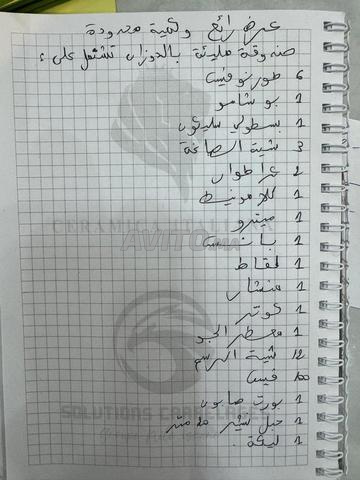 عرض رائع وكمية محدودة
صندوقة مليئة بالدوزان تشتمل على :
6 طورنوفيس
1 بوشامو
1 بسطولي سليكون
3 شيتة الصباغة
2 عراطوار
1 كلامونيط
1 ميترو
1 بانس
1 لقاط
1 منشار
1 كوتر
1 معطر الجو
12 شيتة الرسم
100 فيس
1 بورت صابون
1 حبل نشير 20 متر
1 ليكة .
CERAMIC
AVITO
SOLUTIONS